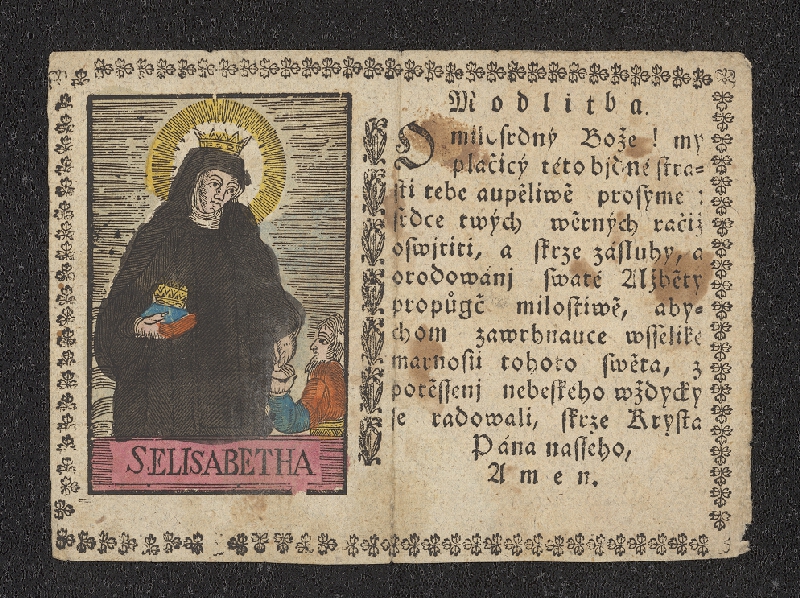 S. ELISABETHA
Modlitba.
O milosrdný Bože! my
plačicý této bjdné stra-
sti tebe aupěliwě prosyme:
srdce twých wěrných račiž
oswjtiti, a skrze zásluhy, a
orodowánj swaté Alžběty
propůgč milostiwě, aby-
chom zawrhnauce wsseliké
marnosti tohoto swěta, z
potěssenj nebeského wždycky
se radowali, skrze Krysta
Pána nasseho,
Amen.